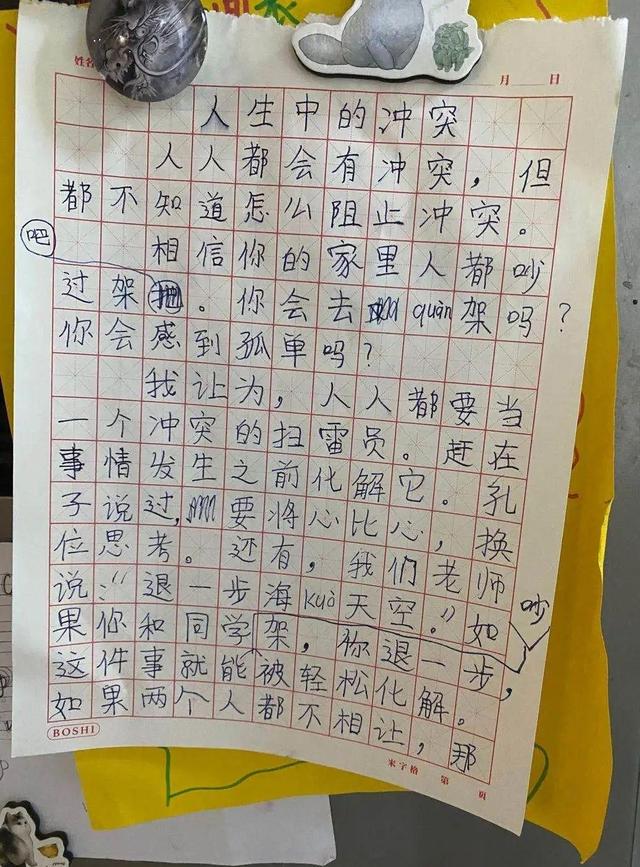 姓名
月 日
人生中的冲突
人人都会有冲突，但
都不知道怎么阻止冲突。
吧
相信你的家里人都吵
过架。你会去quàn架吗？
你会感到孤单吗？
我让为，人人都要当
一个冲突的扫雷员。赶在
事情发生之前化解它。孔
子说过，要将心比心，换
位思考。还有，我们老师
说：“退一步海kuò天空。”如
吵
果你和同学架，你退一步，
这件事就能被轻松化解。
如果两个人都不相让，那
BOSHI
米字格 第 页